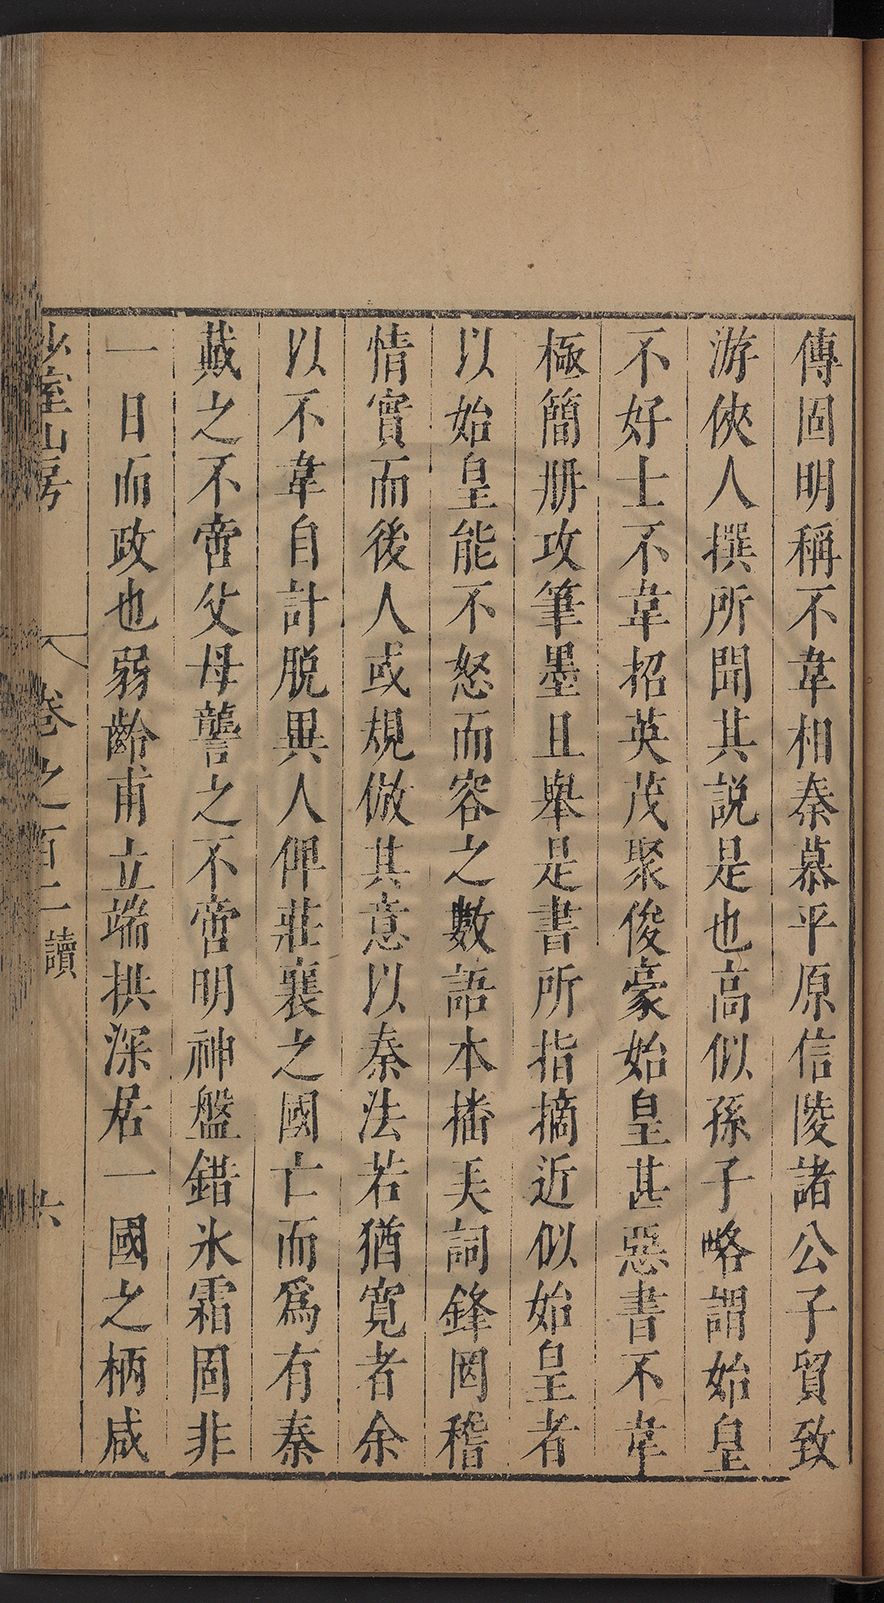 傳固明稱不韋相秦慕平原信陵諸公子貿致
游俠人撰所聞其說是也高似孫子略謂始皇
不好士不韋招英茂聚俊豪始皇甚惡書不韋
極簡册攻筆墨且舉是書所指摘近似始皇者
以始皇能不怒而容之數語本播美詞鋒罔稽
情實而後人或規倣其意以秦法若猶寬者余
以不韋自計脫異人俾莊襄之國亡而爲有秦
戴之不啻父母讋之不啻明神盤錯氷霜固非
一日而政也弱齡甫立端拱深居一國之柄咸
少室山房 卷之百二 讀 六